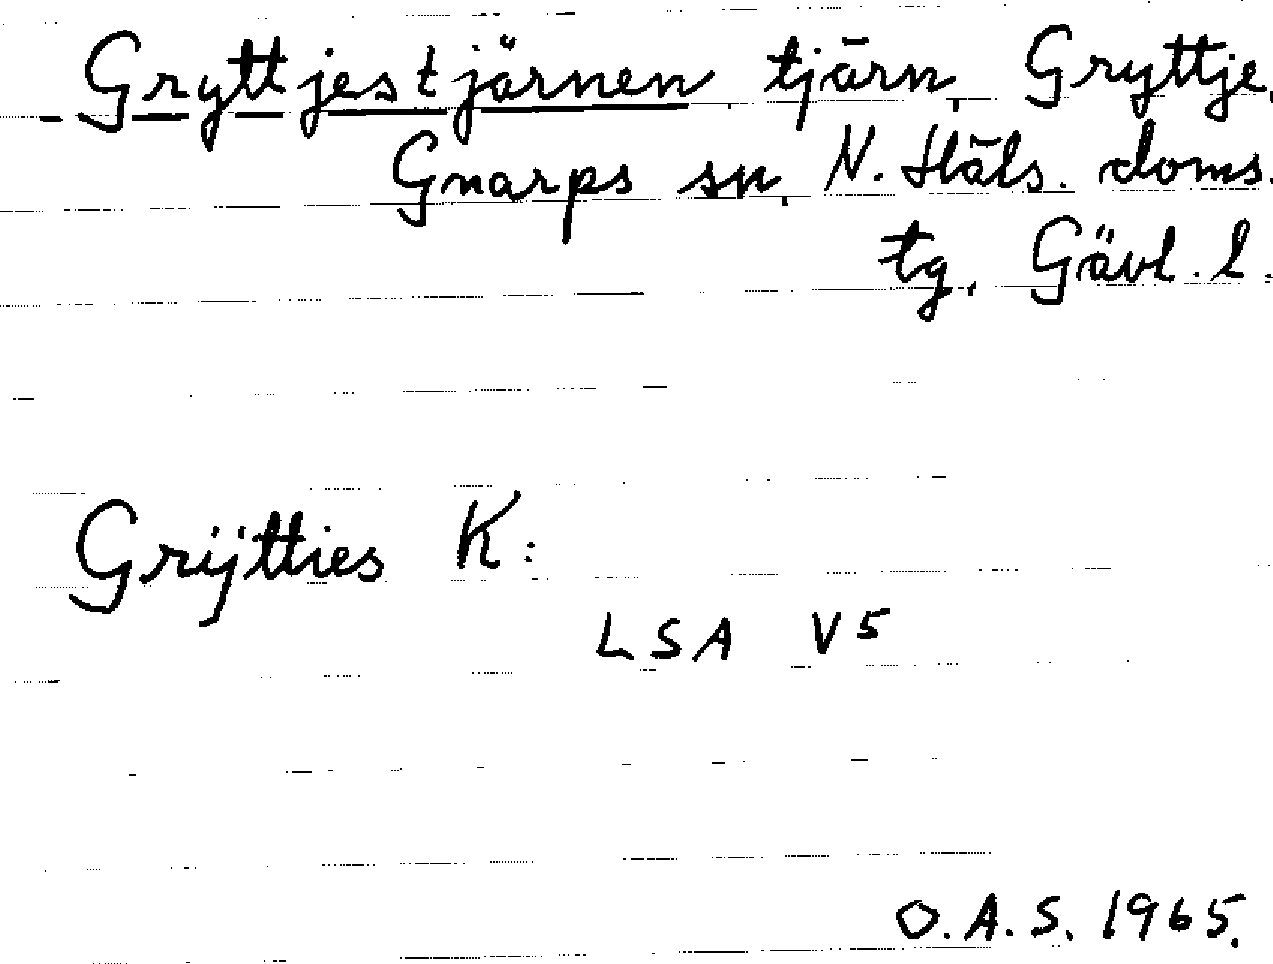 Gryttjestjärnen, tjärn, Gryttje,
Gnarps sn, N. Häls. doms.
tg, Gävl. l.
Grÿtties K:
LSA V5
O.A.S. 1965.